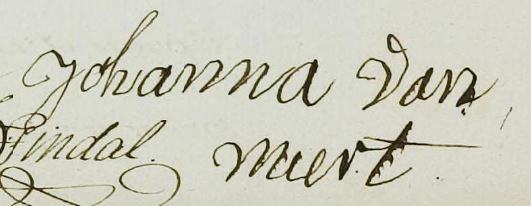 Johanna van
Tindal. miert